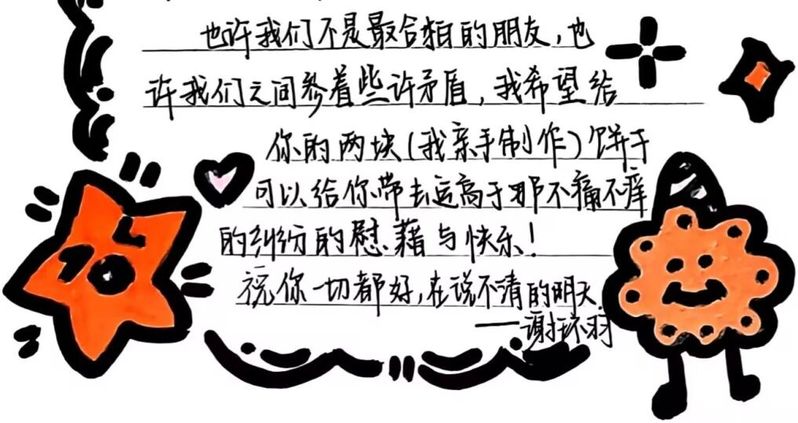 也许我们不是最合拍的朋友,也
许我们之间参着些许矛盾,我希望给
你的两块(我亲手制作)饼干
可以给你带去远高于那不痛不痒
的纠纷的慰藉与快乐!
祝你一切都好,在说不清的明天
——谢